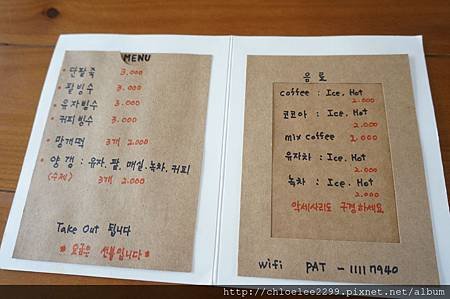 MENU
• 단팥죽 3.000
• 팥빙수 3.000
• 유자빙수 3.000
• 커피빙수 3.000
• 망개떡 3개 2.000
• 양갱 : 유자. 팥. 매실. 녹차. 커피
(수제) 3개 2.000
Take Out 됩니다
* 요금은 선불입니다 *
음료
coffee : Ice. Hot
2.000
코코아 : Ice. Hot
2.000
mix coffee 1.000
유자차 : Ice. Hot
2.000
녹차 : Ice. Hot
2.000
악세사리도 구경하세요
wifi PAT - 11117940
http://chloelee2299.pixnet.net/album